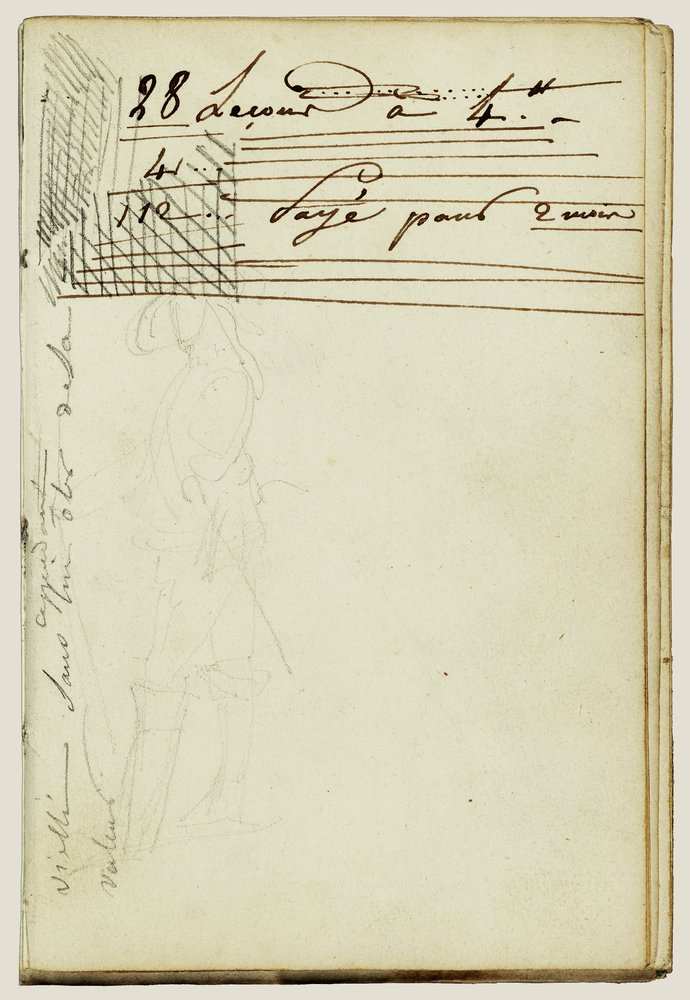 28 Leçons à 4 tt
4
112 Payé pour 2 mois
viellir sans cependant
rien ôter de sa
valeur